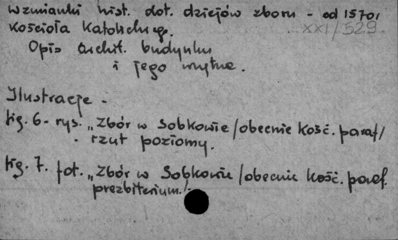 Wzmianki hist. dot. dziejów zboru - od 1570r
XXI/529
Kościoła Katolickiego.
Opis archit. budynku
i jego wnętrza.
Ilustracje -
fig. 6 - rys. „Zbór w Sobkowie /obecnie Kość. paraf/
- rzut poziomy.
fig. 7. fot. „Zbór w Sobkowie /obecnie Kość. paraf.
prezbiterium/.